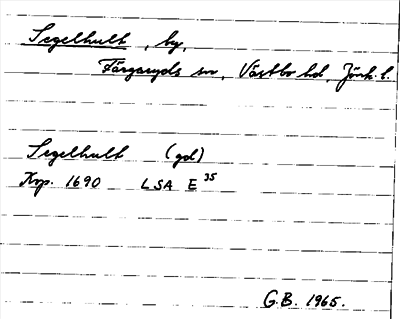 Segelhult, by,
Färgaryds sn, Västbo hd, Jönk. l.
Segelhult (gd)
Kop. 1690 LSA E 35
G.B. 1965.